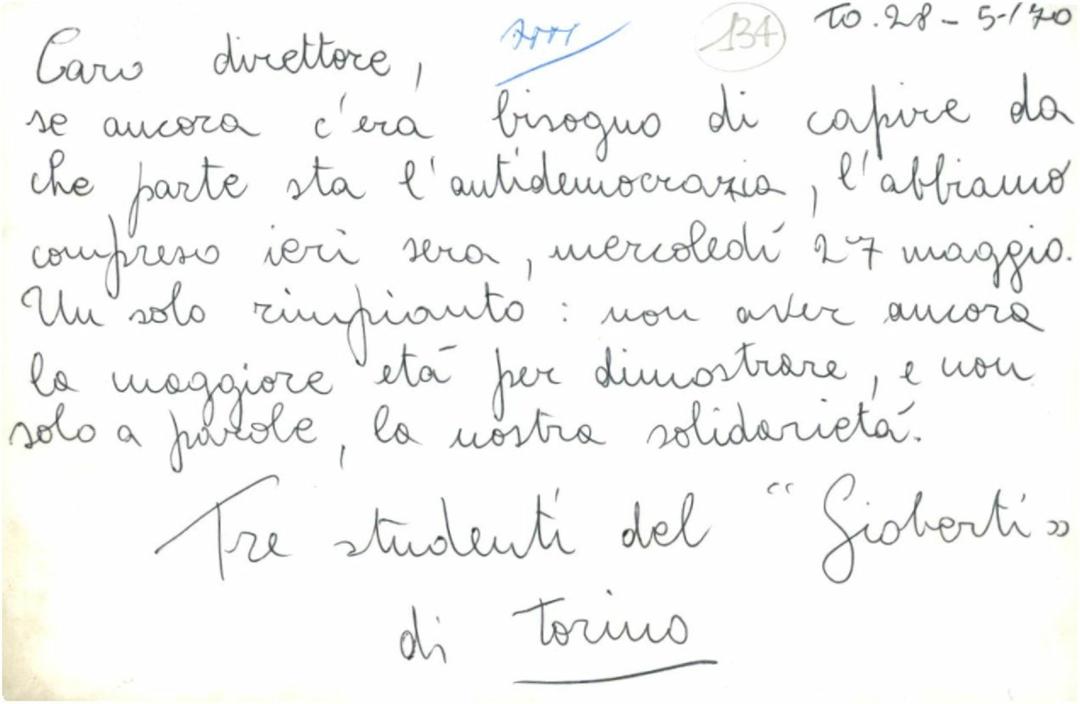 TO. 28-5-/70
134
Caro direttore,
se ancora c'era bisogno di capire da
che parte sta l'antidemocrazia, l'abbiamo
compreso ieri sera, mercoledí 27 maggio.
Un solo rimpianto: non aver ancora
la maggiore etá per dimostrare, e non
solo a parole, la nostra solidarietá.
Tre studenti del "Gioberti"
di Torino